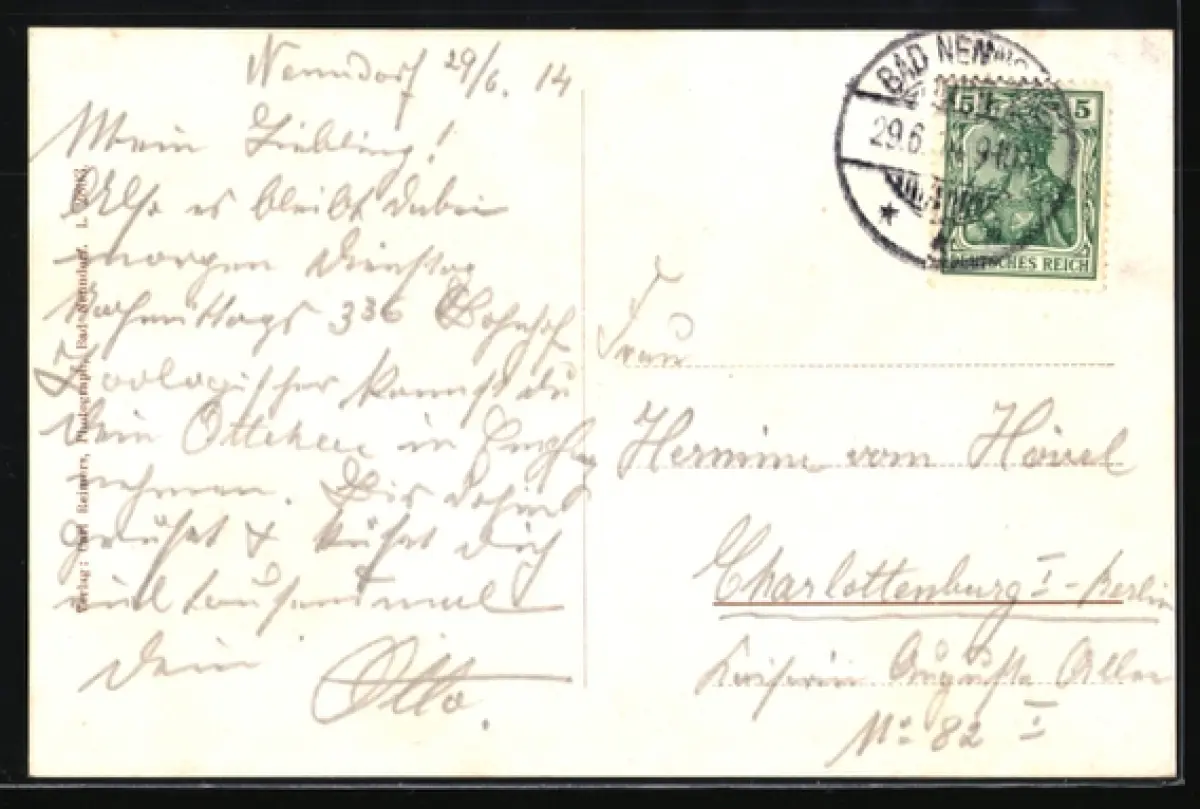 Nenndorf 29/6. 14
Mein Liebling!
Also es bleibt dabei
morgen Dienstag
Nachmittags 336 Bahnhof
Zoologischer kannst du
Dein Ottchen in Empfang
nehmen. Bis dahin
grüßt & küßt Dich
viel tausendmal
Dein
Otto.
Verlag: Carl Reimers, Photograph, Bad Nenndorf. L.
BAD NENN
29.6. 14 9-10
5 5
DEUTSCHES REICH
Frau
Hermine vom Hövel
Charlottenburg I - Berlin
Kaiserin Augusta Allee
No 82 I